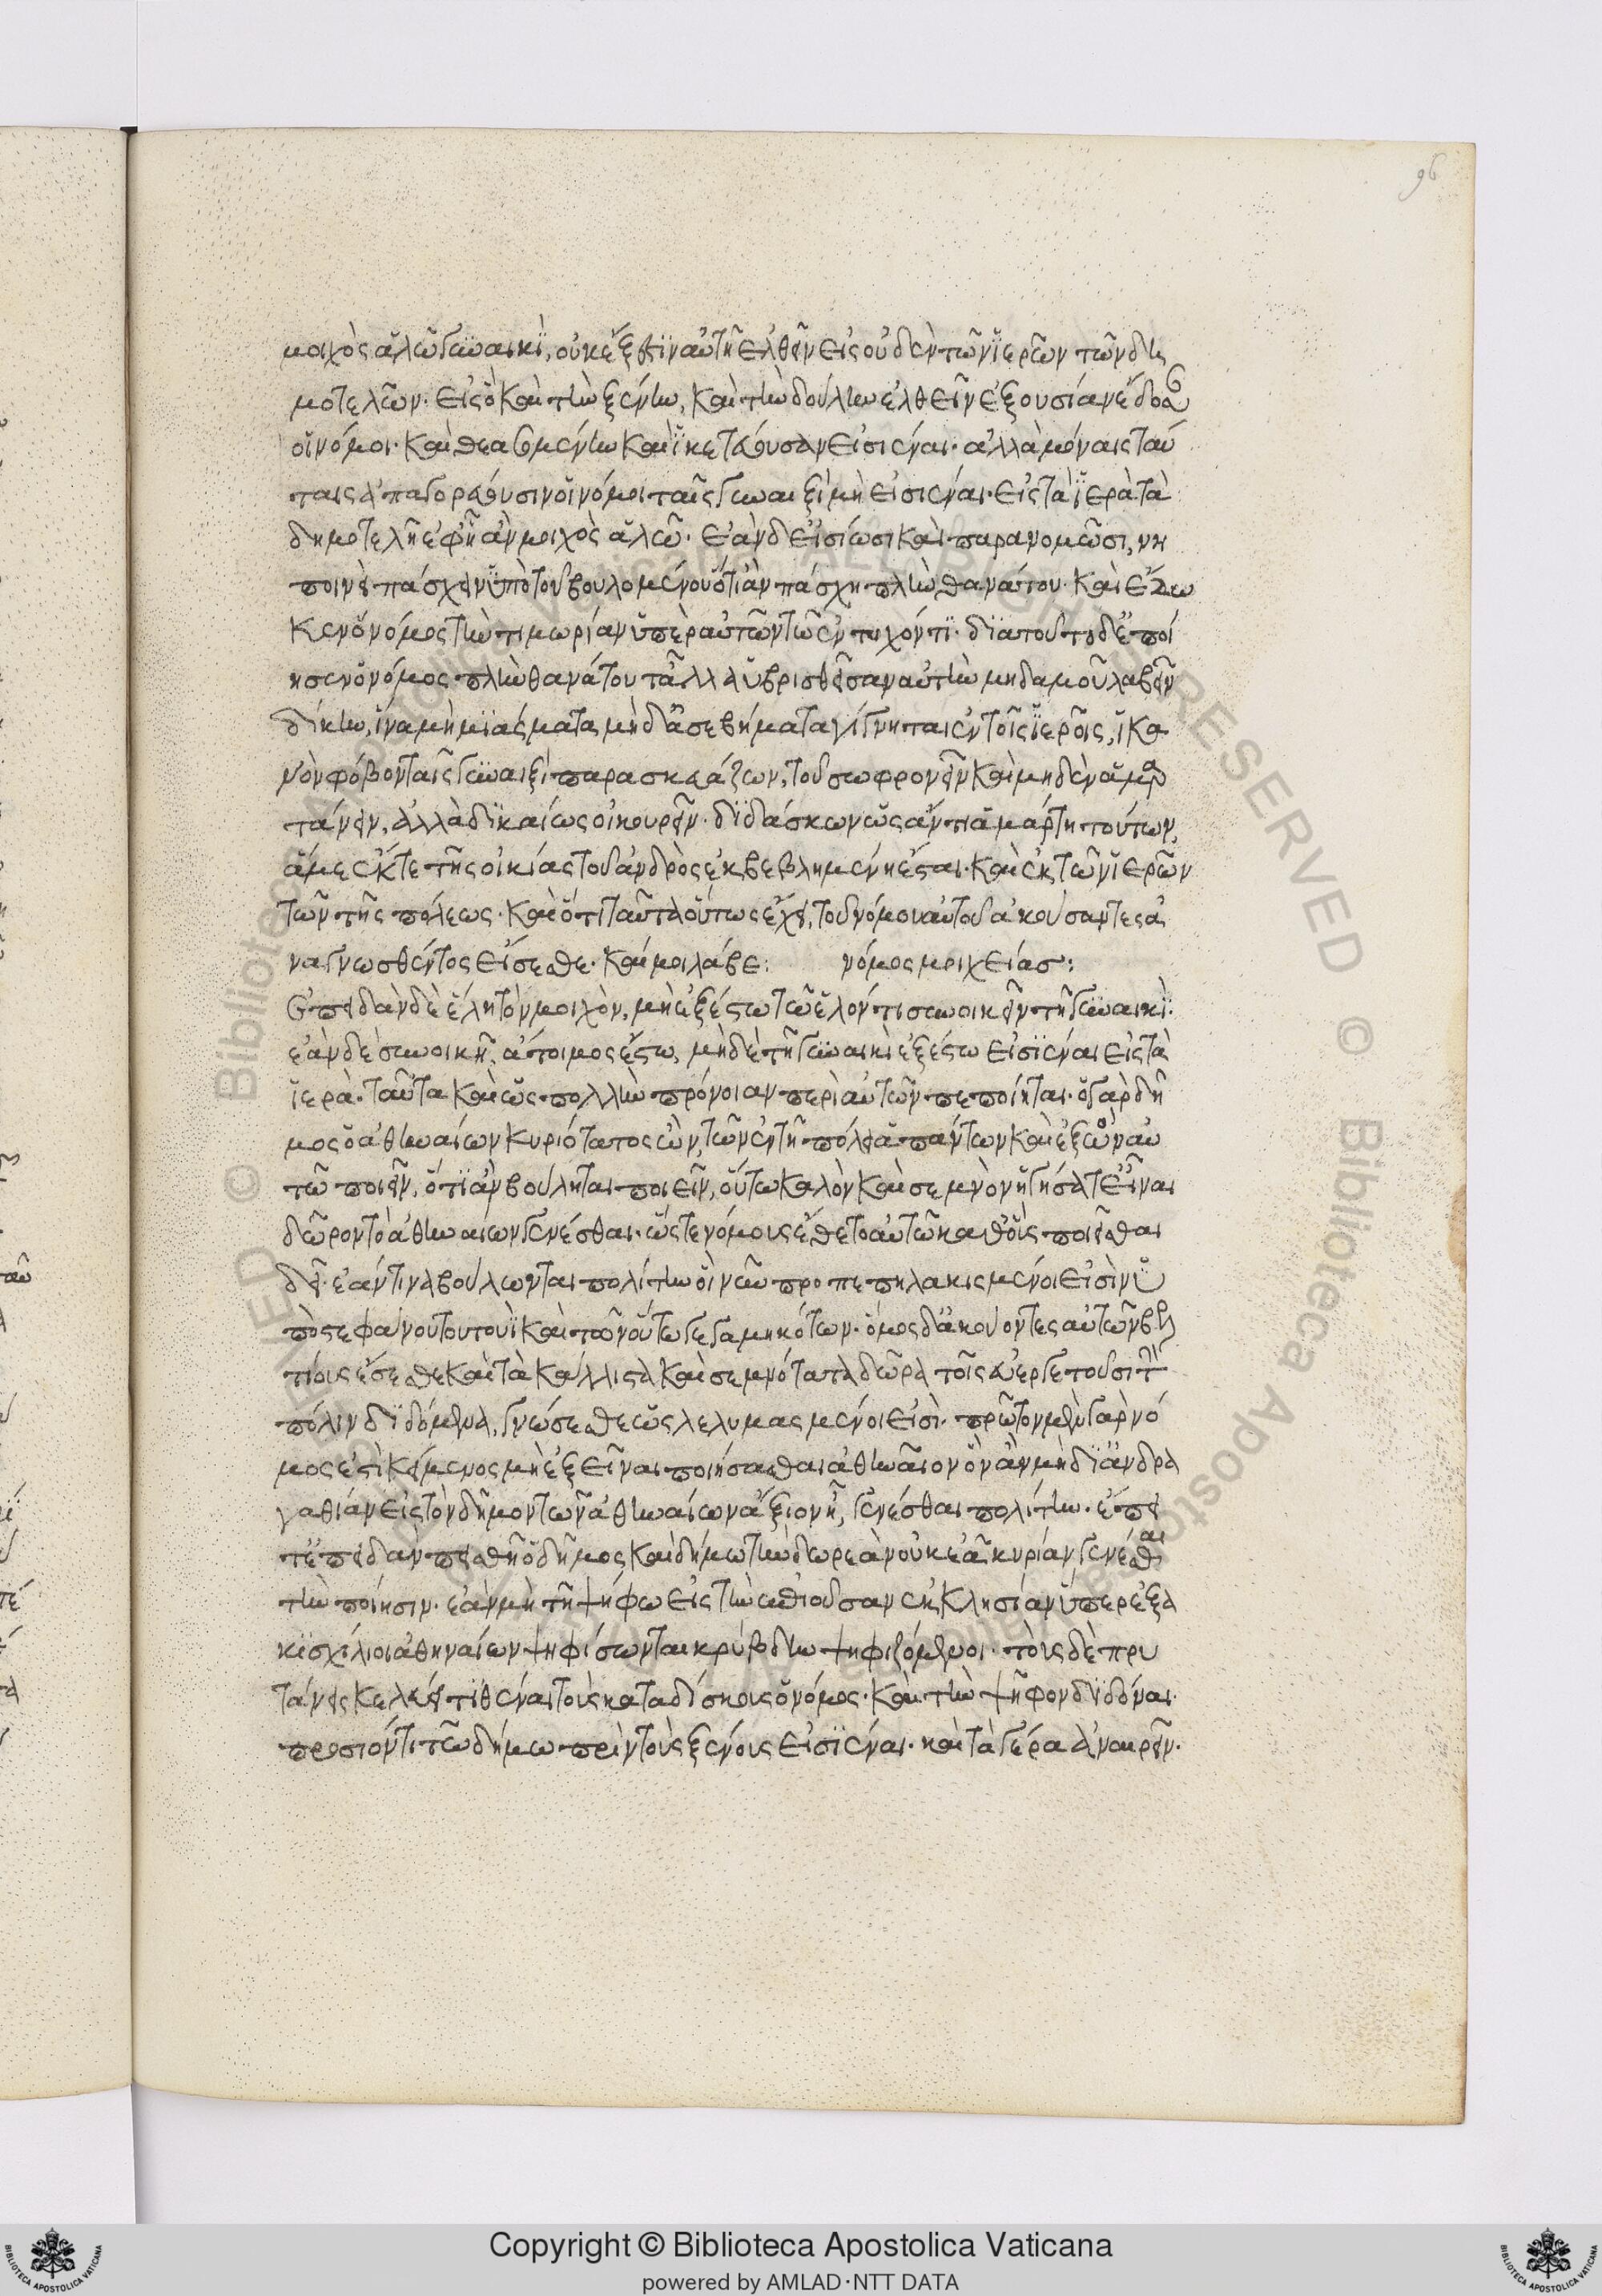 96
μοιχὸς ἁλῶ γυναικὶ, οὐκ ἔξεστιν αὐτῆ ἐλθεῖν εἰς οὐδὲν τῶν ἱερῶν τῶν δη
μοτελῶν· εἰς ὃ καὶ τὴν ξένην, καὶ τὴν δούλην ἐλθεῖν ἐξουσίαν ἔδοσαν
οἱ νόμοι· καὶ θεασομένην καὶ ἱκετεύουσαν εἰσιέναι· ἀλλὰ μόναις ταύ
ταις ἀπαγορεύουσιν οἱ νόμοι ταῖς γυναιξὶ μὴ εἰσιέναι· εἰς τὰ ἱερὰ τὰ
δημοτελῆ ἐφ' ἧ ἂν μοιχὸς ἁλῶ· ἐὰν δ' εἰσίωσι καὶ παρανομῶσι, νη
ποινεὶ πάσχειν ὑπὸ τοῦ βουλομένου ὅτι ἂν πάσχη πλὴν θανάτου· καὶ ἔδω
κεν ὁ νόμος τὴν τιμωρίαν ὑπὲρ αὐτῶν τῶ ἐντυχόντι· διὰ τοῦτο δ' ἐποί
ησεν ὁ νόμος πλὴν θανάτου τἆλλα ὑβρισθεῖσαν αὐτὴν μηδαμοῦ λαβεῖν
δίκην, ἵνα μὴ μιάσματα μὴδ' ἀσεβήματα γίγνηται ἐν τοῖς ἱεροῖς, ἱκα
νὸν φόβον ταῖς γυναιξὶ παρασκευάζων, τοῦ σωφρονεῖν καὶ μηδὲν ἁμαρ
τάνειν, ἀλλὰ δικαίως οἰκουρεῖν· διδάσκων ὡς ἄν τι ἁμάρτη τούτων,
ἅμε ἔκ τε τῆς οἰκίας τοῦ ἀνδρὸς ἐκβεβλημένη ἔσται· καὶ ἐκ τῶν ἱερῶν
τῶν τῆς πόλεως· καὶ ὅτι ταῦτα οὕτως ἔχει, τοῦ νόμου αὐτοῦ ἀκούσαντες ἀ
ναγνωσθέντος εἴσεσθε· καί μοι λάβε: νόμος μοιχείας:
Ἐπειδὰν δὲ ἕλη τὸν μοιχὸν, μὴ ἐξέστω τῶ ἑλόντι συνοικεῖν τῆ γυναικὶ·
ἐὰν δὲ συνοικῆ, ἄτοιμος ἔστω, μὴδὲ τῆ γυναικὶ ἐξέστω εἰσιέναι εἰς τὰ
ἱερὰ· ταῦτα καὶ ὡς πολλὴν πρόνοιαν περὶ αὐτῶν πεποίηται· ὁ γὰρ δῆ
μος ὁ ἀθηναίων κυριότατος ὢν, τῶν ἐν τῆ πόλει ἁπάντων καὶ ἐξὸν αὐ
τῶ ποιεῖν, ὅτι ἂν βούληται ποιεῖν, οὕτω καλὸν καὶ σεμνὸν ἡγήσατ' εἶναι
δῶρον τὸ ἀθηναίων γενέσθαι· ὥστε νόμους ἔθετο αὐτῶ καθ' οὓς ποιεῖσθαι
δεῖ· ἐάν τινα βούλωνται πολίτην οἳ νῦν προπεπηλακισμένοι εἰσὶν ὑ
πὸ στεφάνου τουτουῒ καὶ τῶν οὕτω γεγαμηκότων· ὅμως δ' ἀκούοντες αὐτῶν βελ
τίους ἔσεσθε καὶ τὰ κάλλιστα καὶ σεμνότατα δῶρα τοῖς εὐεργετοῦσι τὴν
πόλιν διδόμενα, γνώσεσθε ὡς λελυμασμένοι εἰσί· πρῶτον μὲν γὰρ νό
μος ἐπικείμενος μὴ ἐξεῖναι ποιήσασθαι ἀθηναῖον ὃν ἂν μὴ δι' ἀνδρα
γαθίαν εἰς τὸν δῆμον τῶν ἀθηναίων ἄξιον ἦ, γενέσθαι πολίτην· ἔπει
τ' ἐπειδὰν πεισθῆ ὁ δῆμος καὶ δήμω τὴν δωρεὰν οὐκ ἐᾶ κυρίαν γενέσθαι
τὴν ποίησιν· ἐὰν μὴ τῆ ψήφω εἰς τὴν ἐπιοῦσαν ἐκκλησίαν ὑπερεξα
κισχίλιοι ἀθηναίων ψηφίσωνται κρύβδην ψηφιζόμενοι· τοὺς δὲ πρυ
τάνεις κελεύει τιθέναι τοὺς καταδίσκους ὁ νόμος· καὶ τὴν ψῆφον διδόναι·
προσιόντι τῶ δήμω πρὶν τοὺς ξένους εἰσιέναι· καὶ τὰ γέρα ἀναιρεῖν·
Copyright © Biblioteca Apostolica Vaticana
powered by AMLAD·NTT DATA